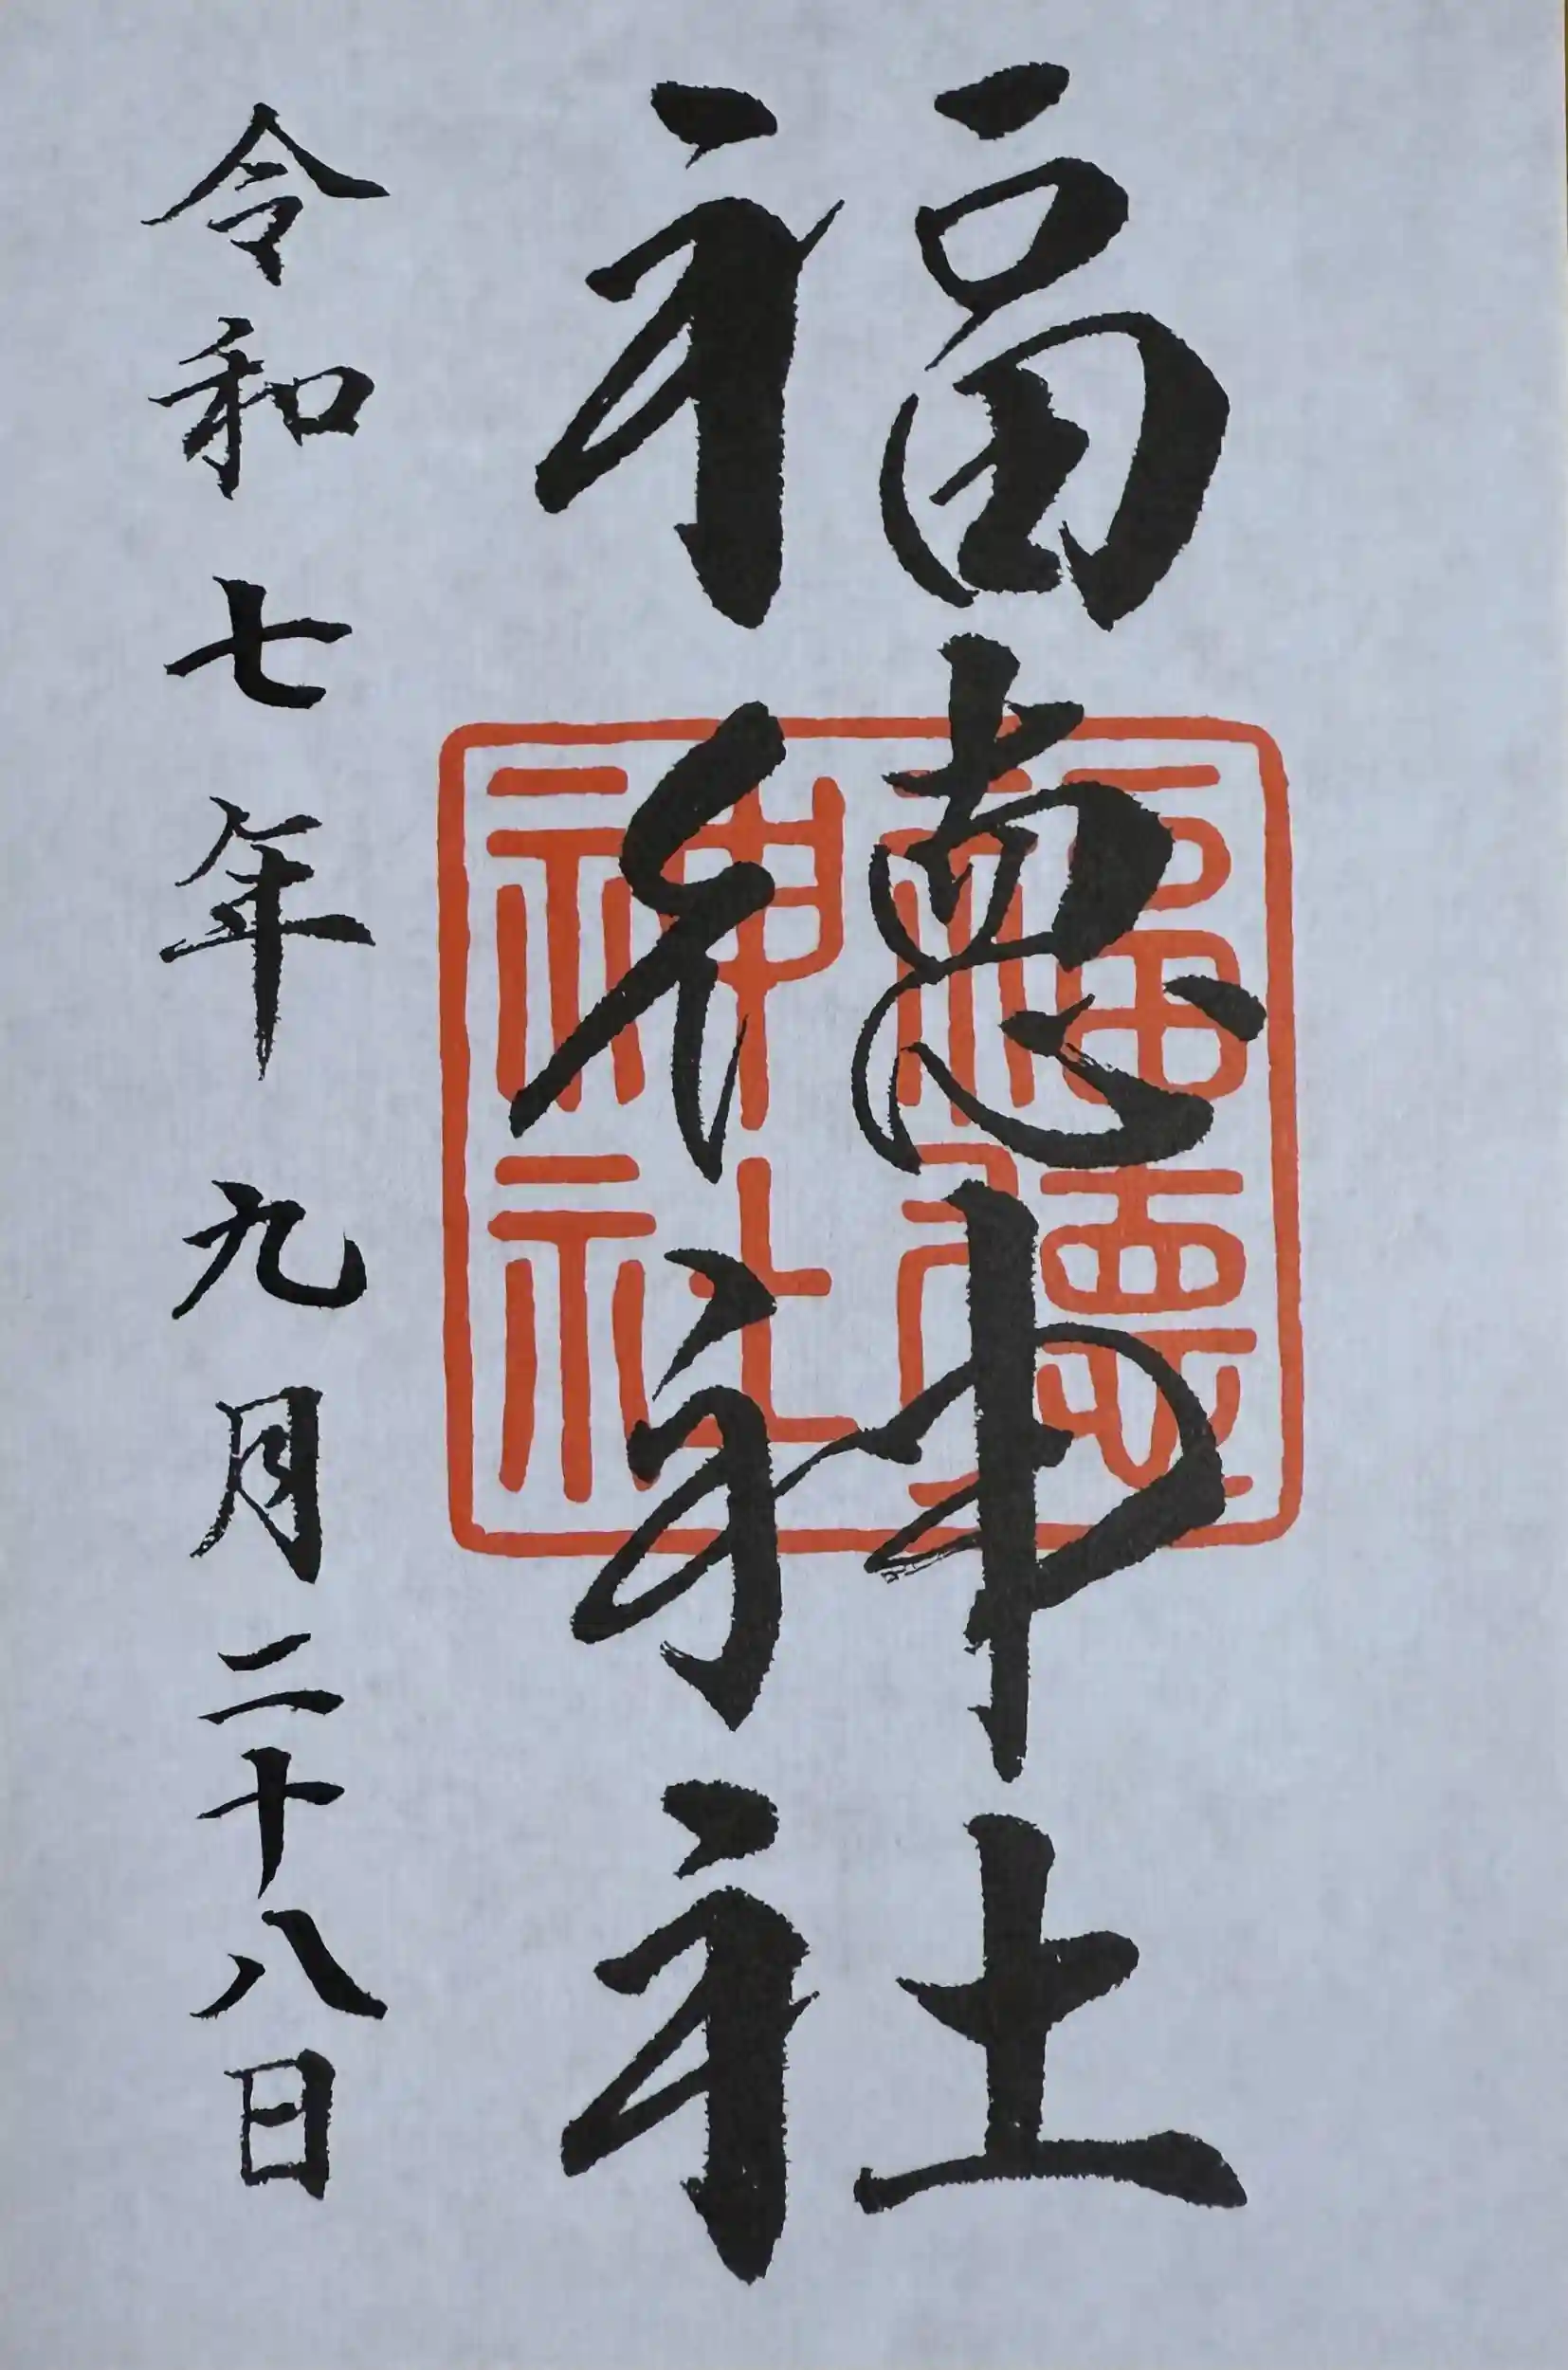 福徳神社
福徳神社
令和七年九月二十八日